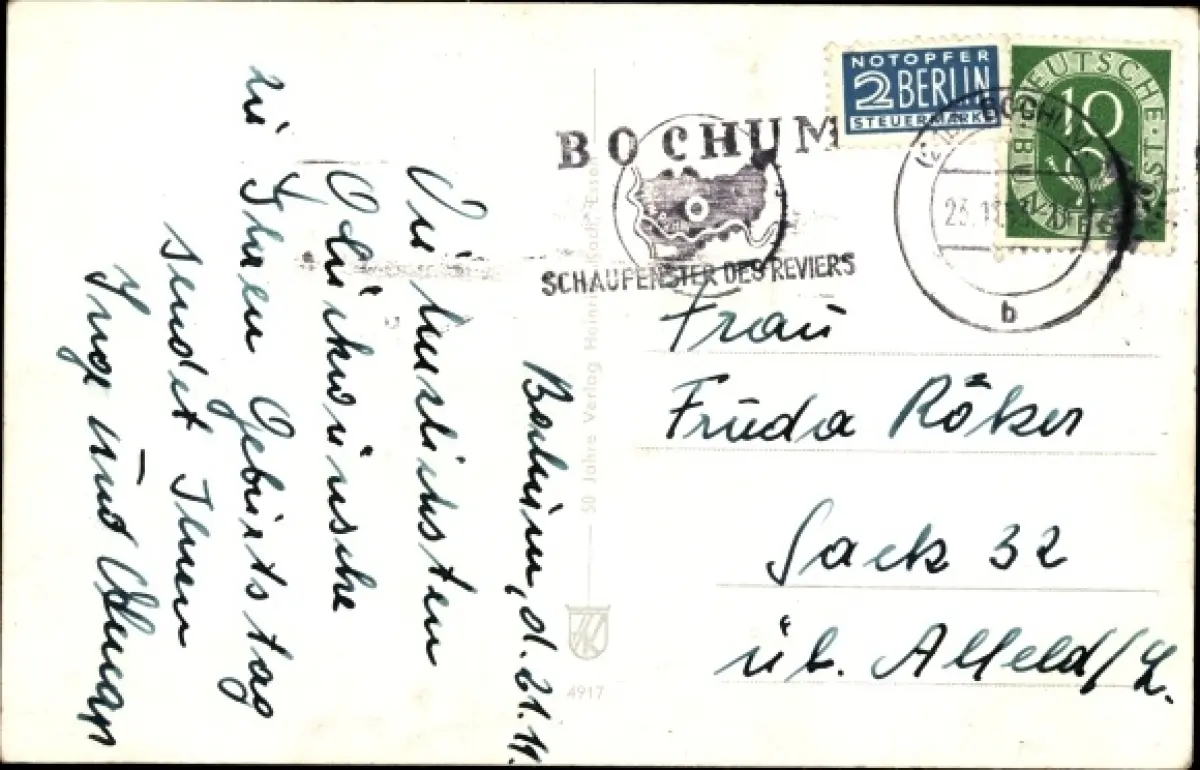 NOTOPFER
2 BERLIN
STEUERMARKE
DEUTSCHE
10
BOCHUM
SCHAUFENSTER DES REVIERS
b
Bochum, d. 21.11.
Die herzlichsten
Glückwünsche
zu Ihrem Geburtstag
sendet Ihnen
Inge und
Frau
Frieda Röker
Sack 32
üb. Alfeld/L.
50 Jahre Verlag Heinrich
Essen
4917